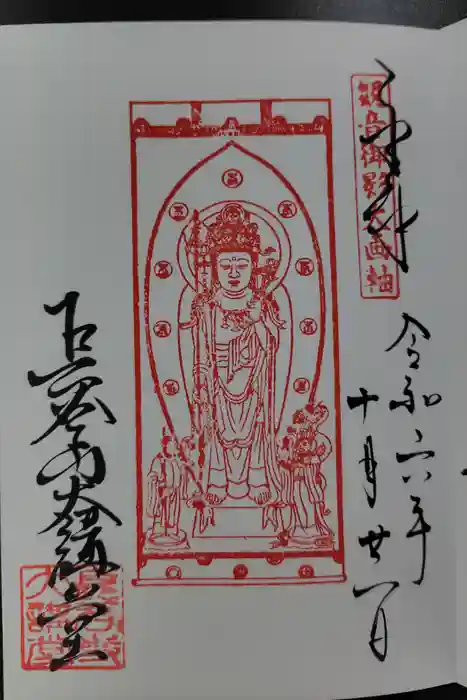 奉拝
観音御影大画軸
令和六年
十月廿一日
長谷寺大講堂